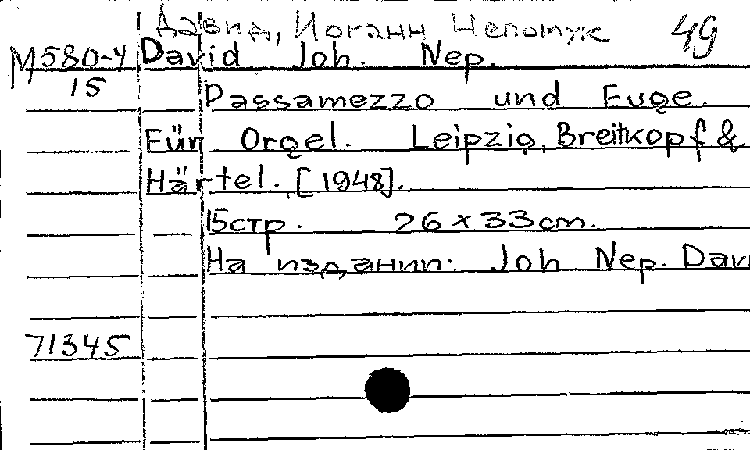 Давид, Иоганн Непомук 49
М580-4 David Joh. Nep.
15
Passamezzo und Fuge.
Für Orgel. Leipzig, Breitkopf &
Härtel. [1948].
15 стр. 26 x 33 cm.
На издании: Joh Nep. Davi
71345